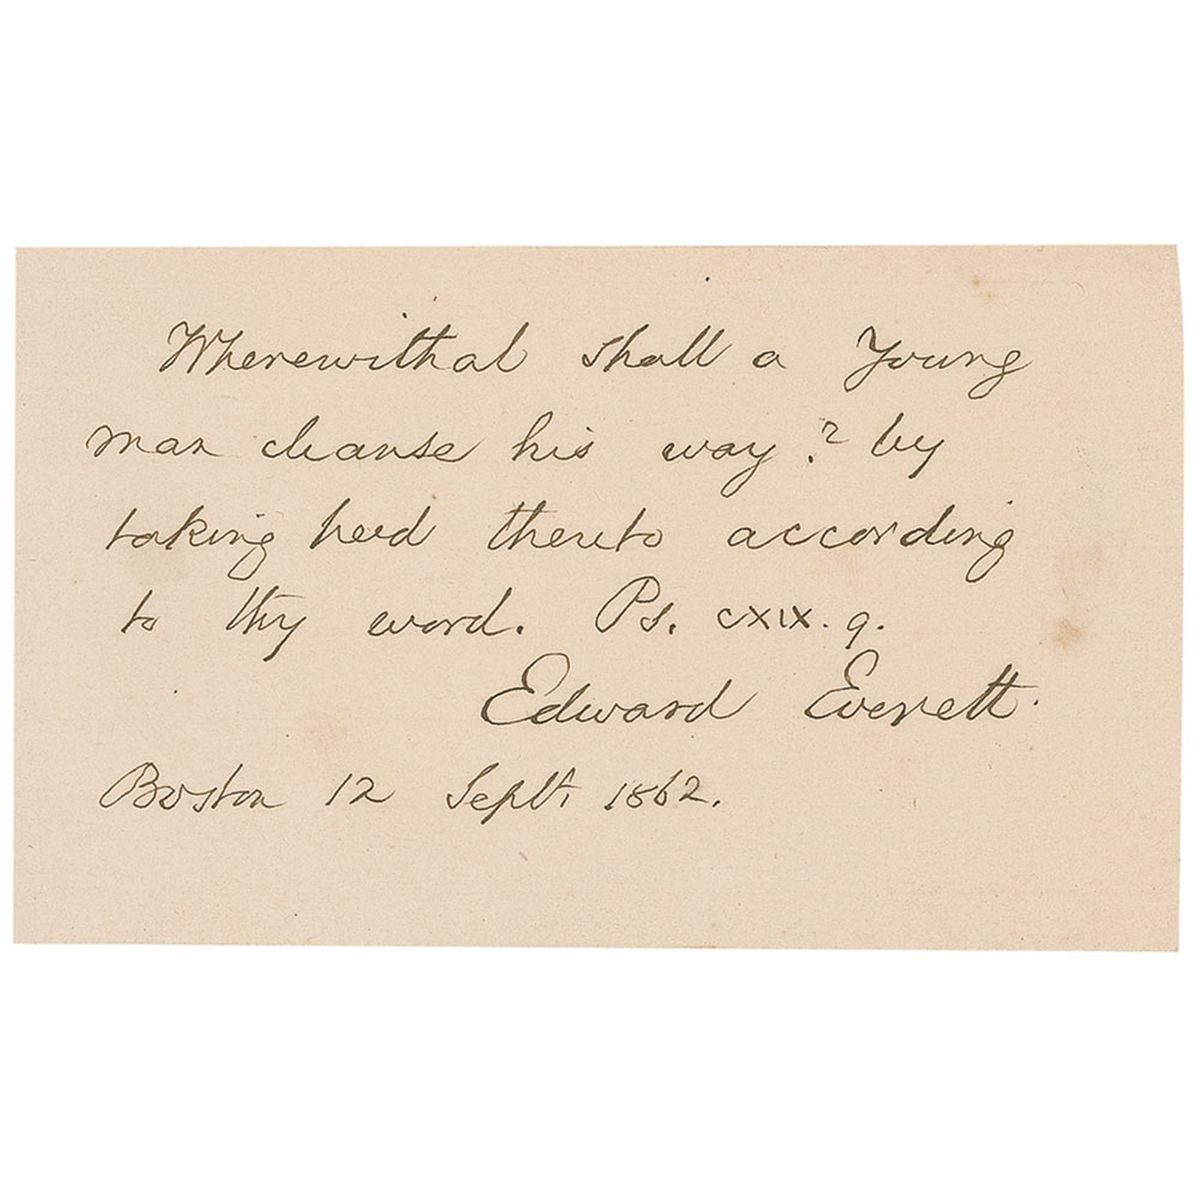 Wherewithal shall a Young
man cleanse his way? by
taking heed thereto according
to thy word. Ps. CXIX. 9.
Edward Everett.
Boston 12 Sept. 1862.